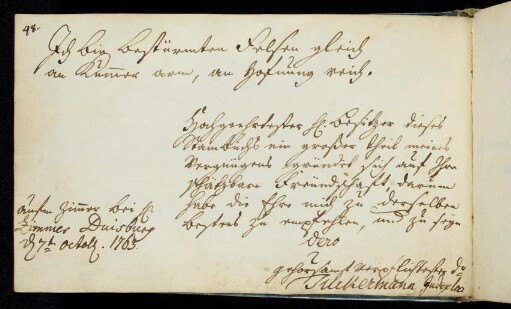 48.
Ich bin bestürmten Felsen gleich
an Kummer arm, an Hofnung reich.
Hochgeehrtester H. Besitzer dieses
Stambuchs ein großer Theil meines
Vergnügens gründet sich auf Ihre
schätzbare Freündschaft, darum
habe die Ehre mich zu derselben
bestens zu empfehlen, und zu seyn
Dero
gehorsamst verpflichtester
Tückermann
auf dem Zimmer bei H.
Zimmer Duisburg
d. 7t octob. 1765.